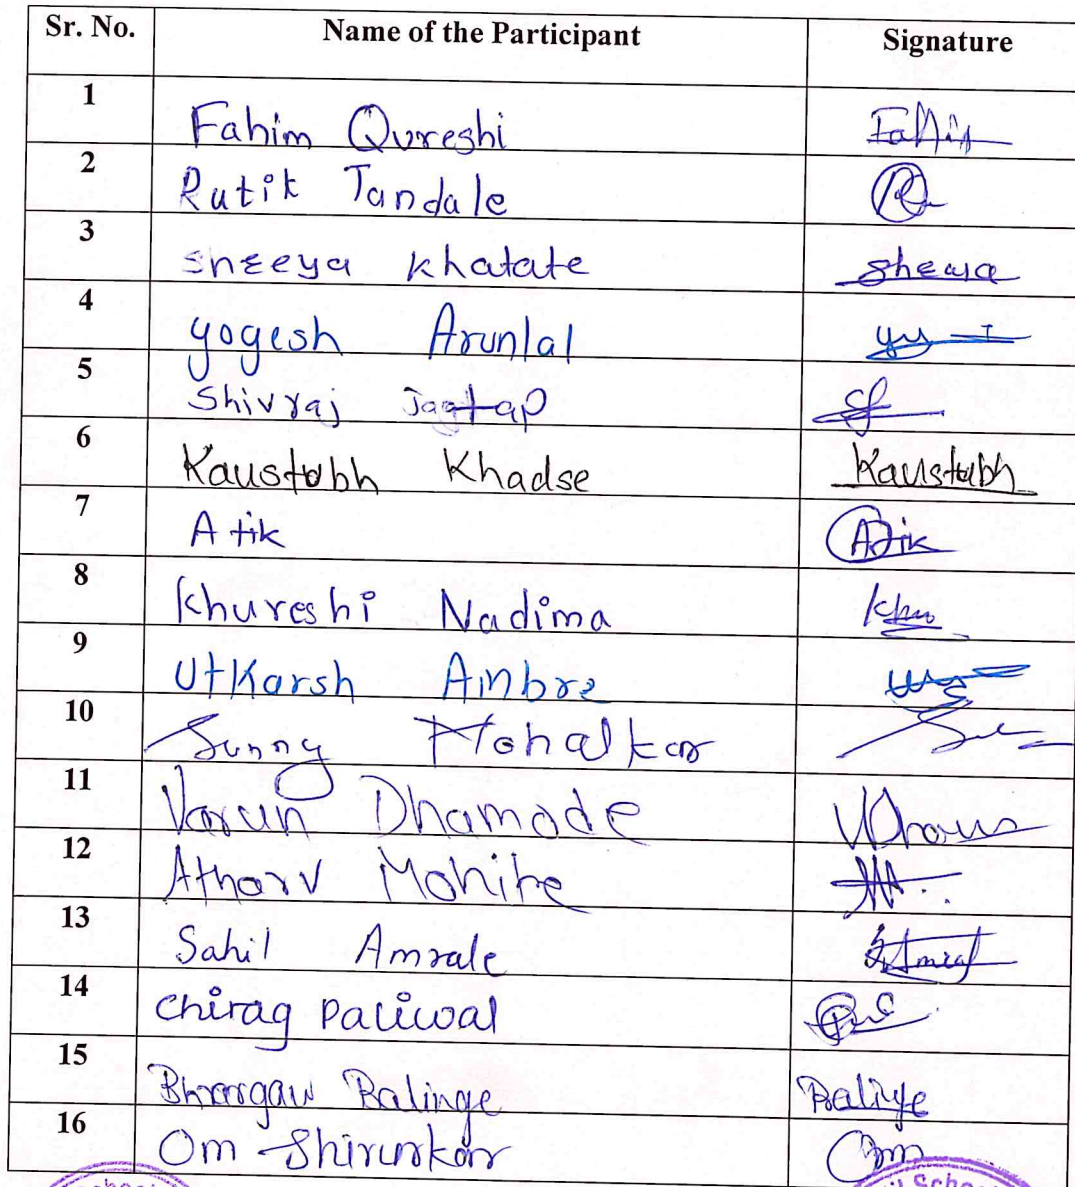 Sr. No. Name of the Participant Signature
1 Fahim Qureshi Fahim
2 Rutik Tandale
3 sheeya khatate sheeya
4 yogesh Arunlal
5 Shivraj Jagtap
6 Kaustubh Khadse Kaustubh
7 Atik Atik
8 Khureshi Nadima Khu
9 Utkarsh Ambre
10 Sunny Mohalkar
11 Varun Dhamode
12 Atharv Mohite
13 Sahil Amrale
14 Chirag Paliwal
15 Bhargaw Balinge Balinge
16 Om Shirurkar Om
School
il School